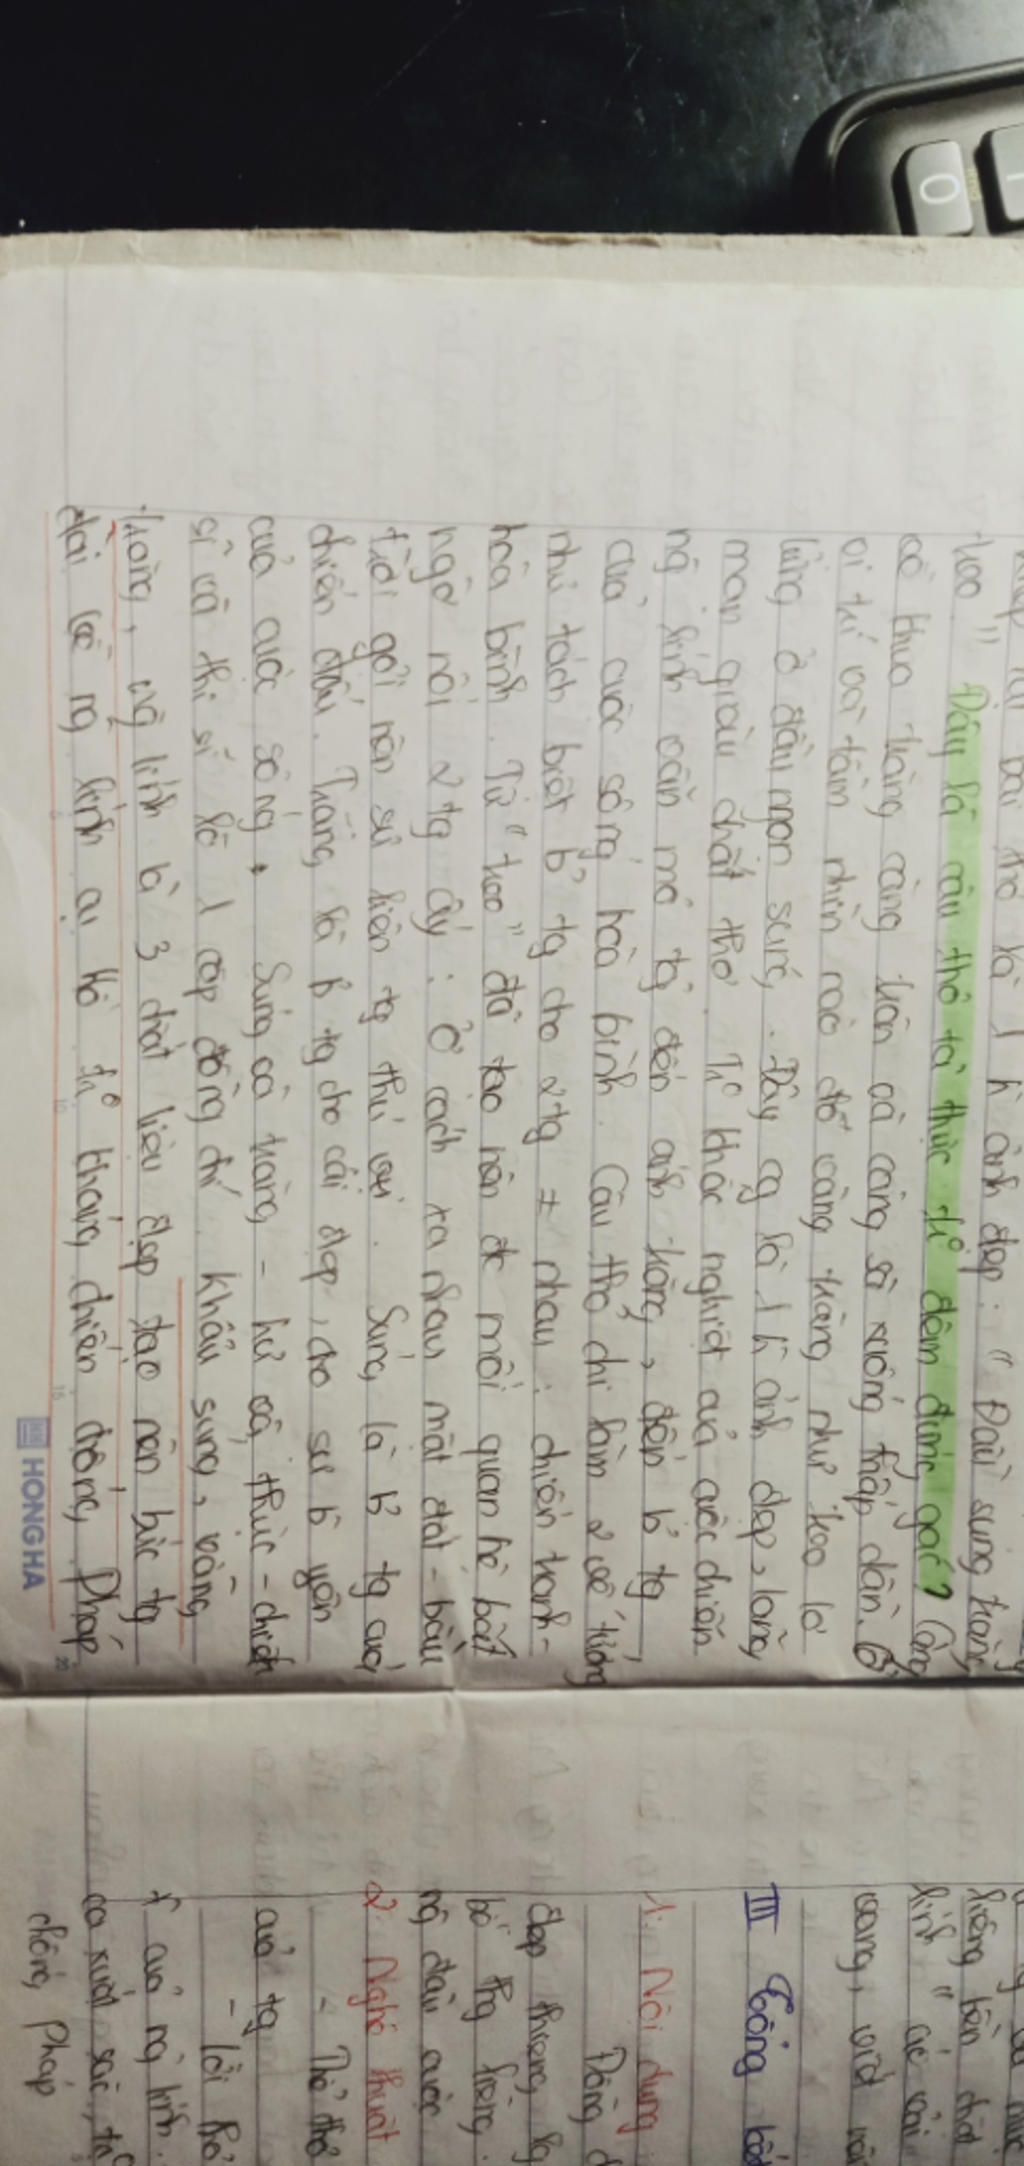 bài thơ là 1 h ảnh đẹp: " Đầu súng trăng
treo " Đây là câu thơ tả thực tr° đêm đứng gác? Càng
về khua trăng càng tròn và càng sà xuống thấp dần. Ở
vị trí và tầm nhìn nào đó vầng trăng như treo lơ
lửng ở đầu ngọn súng. Đây cg là 1 h ảnh đẹp, lãng
mạn giàu chất thơ. Tr° khắc nghiệt của cuộc chiến
ng lính vẫn mơ tg đến ánh trăng, đến b' tg
của cuộc sống hoà bình. Câu thơ chỉ làm 2 vế tưởng
như tách biệt b' tg cho 2 tg ≠ nhau: chiến tranh -
hoà bình. Từ "treo" đã tạo nên đc mối quan hệ bất
ngờ nối 2 tg ấy: ở cách xa nhau mặt đất - bầu
trời gợi nên sự liên tg thú vị. Súng là b' tg của
chiến đấu. Trăng là b tg cho cái đẹp, cho sự b yên
của cuộc sống. Súng và trăng - hư và thực - chiến
sĩ và thi sĩ là 1 cặp đồng chí. Khẩu súng, vầng
trăng, ng lính là 3 chất liệu đẹp tạo nên bức tg
đài về ng lính cụ Hồ tr° kháng chiến chống Pháp
HONG HA
liêng bền chặt
lính "
vang, viết
III Tổng kết
1. Nội dung
Đồng
đẹp thiêng lg
bó thg liêng.
ng đầu cuộc
2. Nghệ thuật
- Thể thơ
của tg
- lời thơ
của ng lính.
ca xuất sắc,
chống Pháp